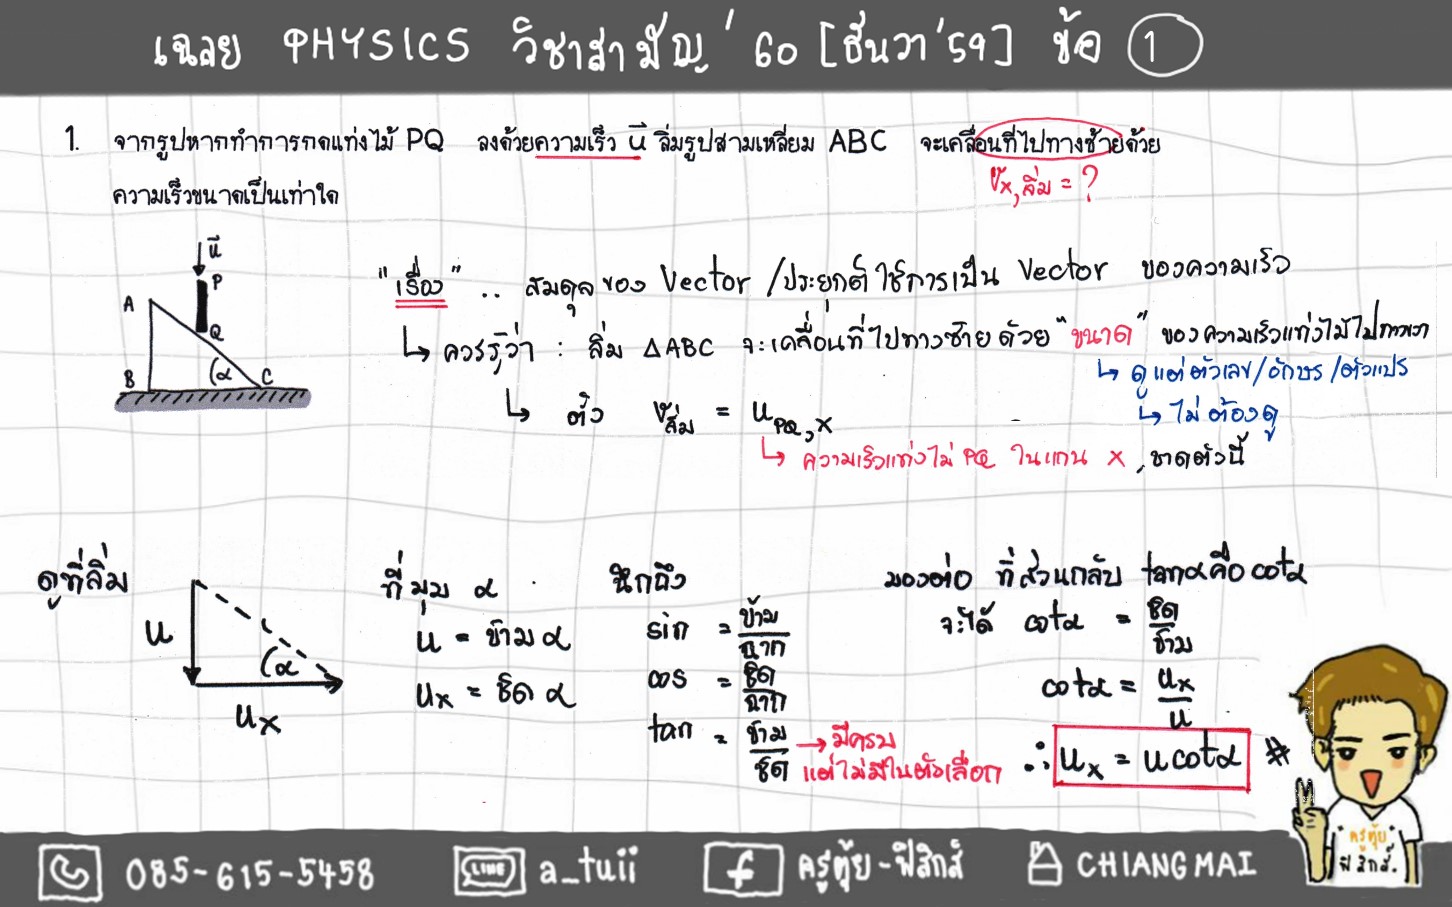 เฉลย PHYSICS วิชาสามัญ' 60 [ธันวา'59] ข้อ 1
1. จากรูปหากทำการกดแท่งไม้ PQ ลงด้วยความเร็ว u ลิ่มรูปสามเหลี่ยม ABC จะเคลื่อนที่ไปทางซ้ายด้วย
ความเร็วขนาดเป็นเท่าใด
Vx,ลิ่ม = ?
u
P
A
Q
B
α
C
"เรื่อง" .. สมดุลของ Vector /ประยุกต์ ใช้การเป็น Vector ของความเร็ว
↳ ควรรู้ว่า : ลิ่ม △ABC จะเคลื่อนที่ไปทางซ้ายด้วย "ขนาด" ของความเร็วแท่งไม้ไปทางขวา
↳ ดูแต่ตัวเลข/อักษร/ตัวแปร
↳ ไม่ต้องดู
↳ ดังนั้น Vลิ่ม = uPQ,x
↳ ความเร็วแท่งไม้ PQ ในแกน x , หาตัวนี้
ดูที่ลิ่ม
u
α
ux
ที่มุม α
u = ข้าม α
ux = ชิด α
นึกถึง
sin = ข้าม/ฉาก
cos = ชิด/ฉาก
tan = ข้าม/ชิด → มีครบ
แต่ไม่มีในตัวเลือก
มองต่อ ที่ส่วนกลับ tanα คือ cotα
จะได้ cotα = ชิด/ข้าม
cotα = ux/u
∴ ux = u cotα #
ครูตุ้ย
ฟิสิกส์.
085-615-5458 LINE a_tuii f ครูตุ้ย-ฟิสิกส์ CHIANGMAI